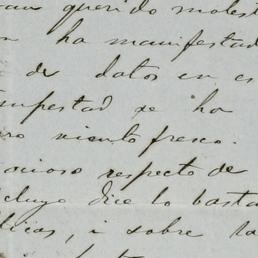 querido molest
ha manifestad
de datos en es
mpestad se ha
ro viento fresco.
respecto de
cluyo que lo basta
licas, i sobre la